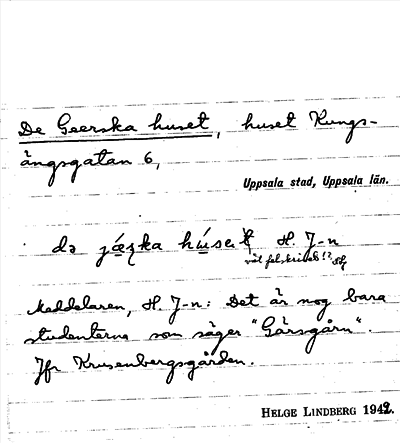 De Geerska huset, huset Kungs-
ängsgatan 6,
Uppsala stad, Uppsala län.
də jǽʂka hʉ́set H. J-n
väl felskrivet!?
Meddelaren, H. J-n: Det är nog bara
studenterna som säger "Gärsgårn".
Jfr Krusenbergsgården.
HELGE LINDBERG 1942.